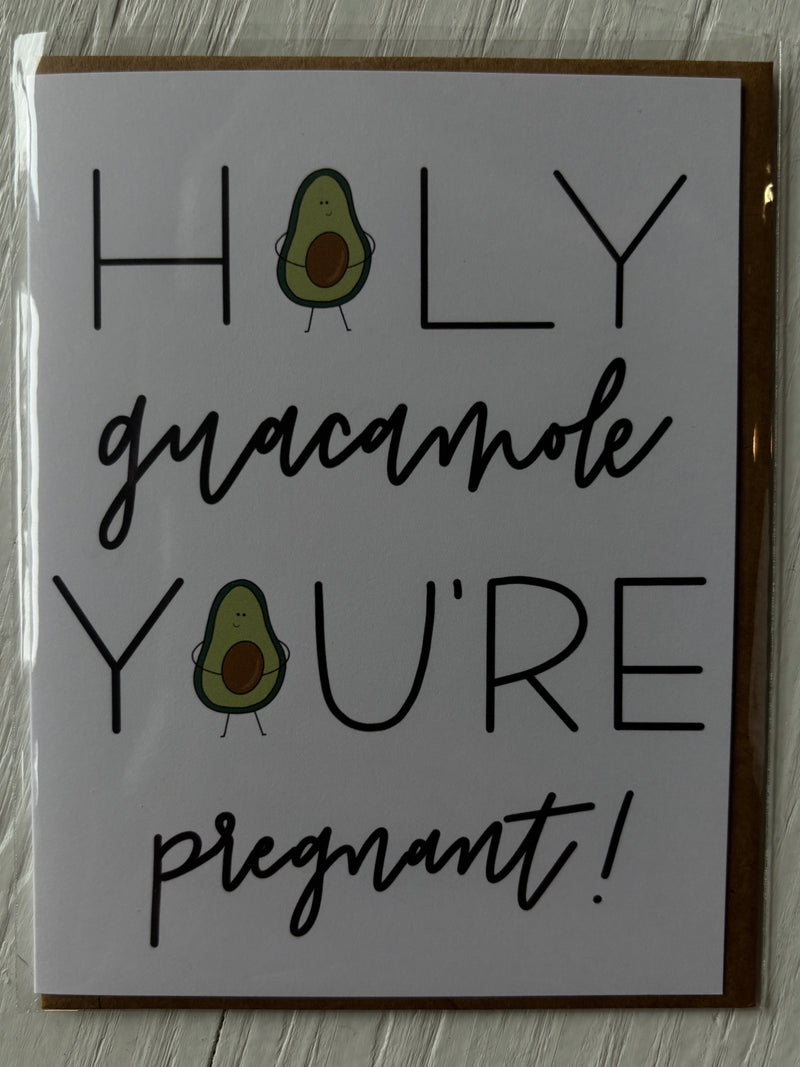 HOLY
guacamole
YOU'RE
pregnant!